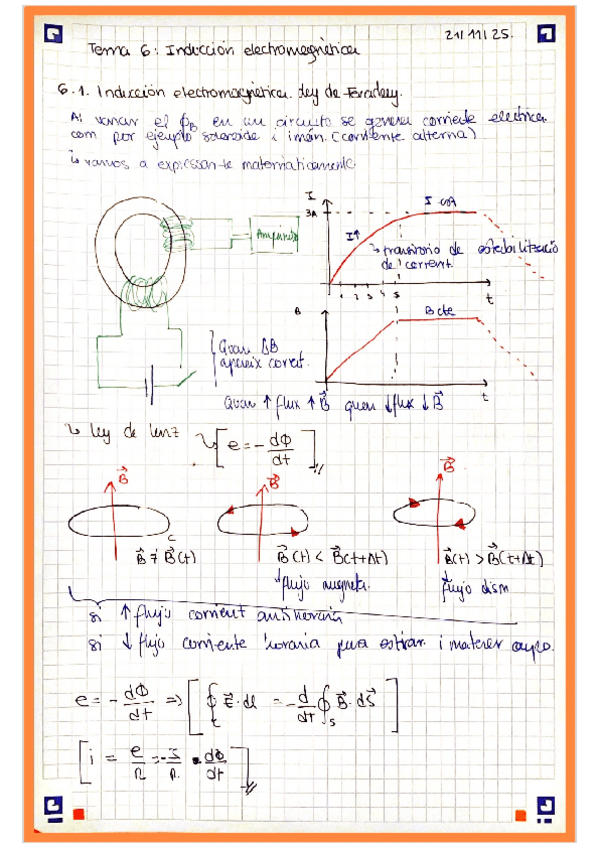 21/11/25.
Tema 6: Inducción electromagnética
6.1. Inducción electromagnética. Ley de Faraday.
Al variar el ϕB en un circuito se genera corriente electrica
com por ejemplo solenoide i imán. (corriente alterna)
↳ vamos a expressar-te matematicamente
I
3A
I cot
I↑
↳ transitorio de estabilització
de corrent.
1 2 3 4 5
t
B
B cte
t
Quan ΔB
apareix corrent.
Quan ↑ flux ↑ B⃗ quan ↓flux ↓ B⃗
↳ Ley de Lenz ↳ [e = - dΦ/dt]
B⃗ B⃗ B⃗
C
B⃗ ≠ B⃗(t) B⃗(t) < B⃗(t+Δt) B⃗(t) > B⃗(t+Δt)
flujo flujo dism
si ↑ flujo corrient antihoraria
si ↓ flujo corriente horaria para estirar i
e = - dΦ/dt => [∮c E⃗·dl = - d/dt ∮s B⃗·dS⃗]
[i = e/R = - · dΦ/dt]